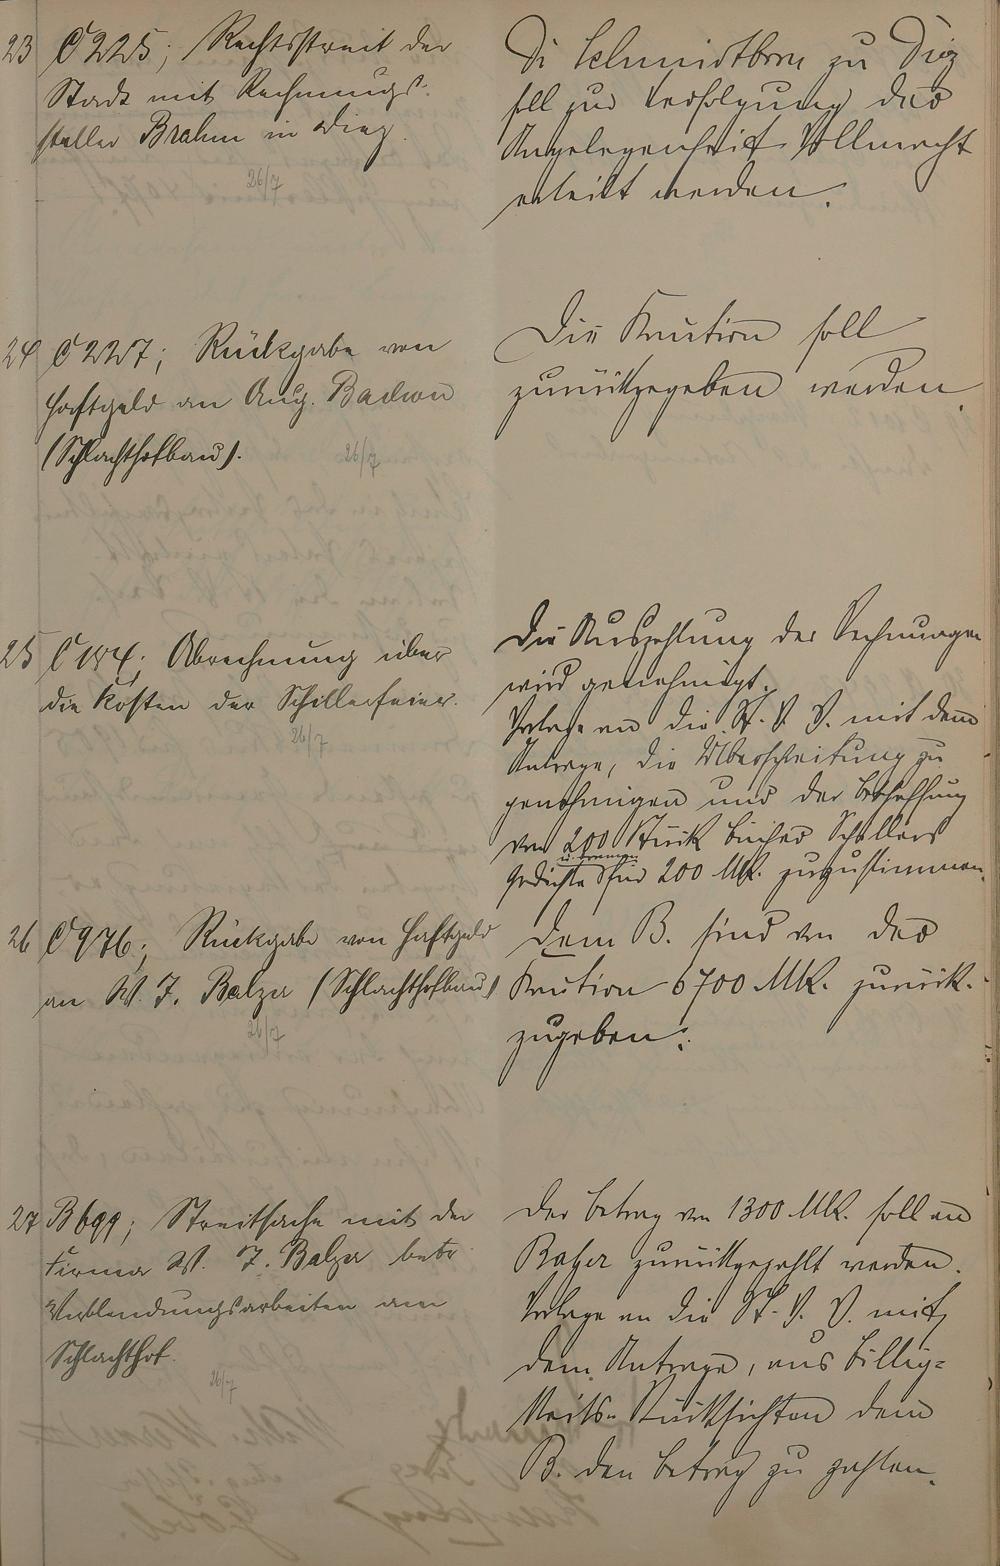 23 C 225; Rechtsstreit der
Stadt mit Rechnungs-
steller Brahm in Diez.
26/7
Di Schmidtborn zu Diez
soll zur Verfolgung der
Angelegenheit Vollmacht
erteilt werden.
24 C 227; Rückgabe von
Haftgeld an Aug.
(Schlachthofbau).
26/7
Die Kaution soll
zurückgegeben werden.
25 Abrechnung über
die Kosten der Schillerfeier.
26/7
Die Auszahlung der Rechnungen
wird genehmigt.
Vorlage an die St. V. V. mit dem
Antrage, die Überschreitung zu
genehmigen und der Beschaffung
von 200 Stück Bücher Schillers
Gedichte u. Dramen für 200 Mk. zuzustimmen.
26 C 976; Rückgabe von Haftgeld
an W. J. Balzer (Schlachthofbau)
26/7
Dem B. sind von der
Kaution 6700 Mk. zurück-
zugeben.
27 B 699; Streitsache mit der
Firma W. J. Balzer betr.
Verblendungsarbeiten am
Schlachthof.
26/7
Der Betrag von 1300 Mk. soll an
Balzer zurückgezahlt werden.
Vorlage an die St. V. V. mit
dem Antrage, aus Billig-
keits-Rücksichten dem
B. den Betrag zu zahlen.